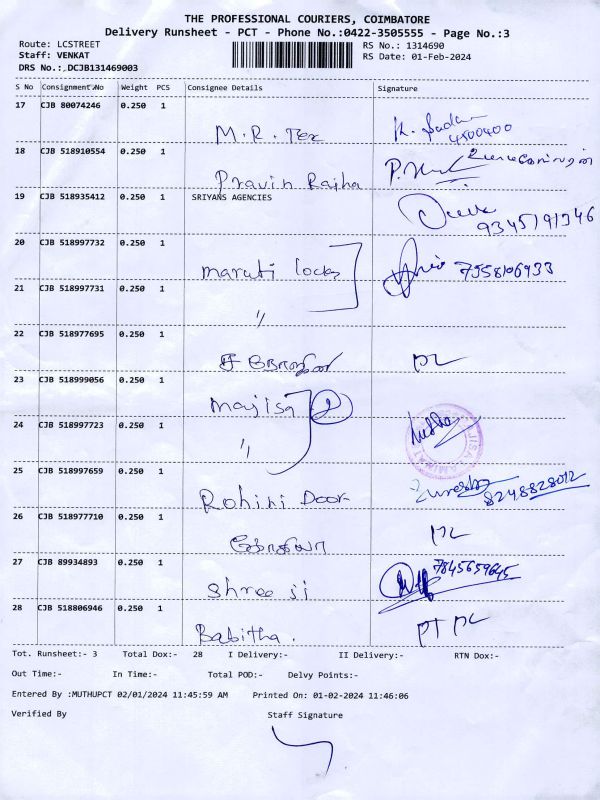 THE PROFESSIONAL COURIERS, COIMBATORE
Delivery Runsheet - PCT - Phone No.:0422-3505555 - Page No.:3
Route: LCSTREET
RS No.: 1314690
Staff: VENKAT
RS Date: 01-Feb-2024
DRS No.:.DCJB131469003
S No Consignment No Weight PCS Consignee Details Signature
17 CJB 80074246 0.250 1
M.R. Tex
4500400
18 CJB 518910554 0.250 1
Pravin Rajha
19 CJB 518935412 0.250 1 SRIYANS AGENCIES
9345191346
20 CJB 518997732 0.250 1
maruti locks 7558106933
21 CJB 518997731 0.250 1
"
22 CJB 518977695 0.250 1
23 CJB 518999056 0.250 1
majisa 2
24 CJB 518997723 0.250 1
"
25 CJB 518997659 0.250 1
Rohini Door 8248828012
26 CJB 518977710 0.250 1
27 CJB 89934893 0.250 1
Shree ji 7845659645
28 CJB 518806946 0.250 1
Babitha.
Tot. Runsheet:- 3 Total Dox:- 28 I Delivery:- II Delivery:- RTN Dox:-
Out Time:- In Time:- Total POD:- Delvy Points:-
Entered By :MUTHUPCT 02/01/2024 11:45:59 AM Printed On: 01-02-2024 11:46:06
Verified By Staff Signature